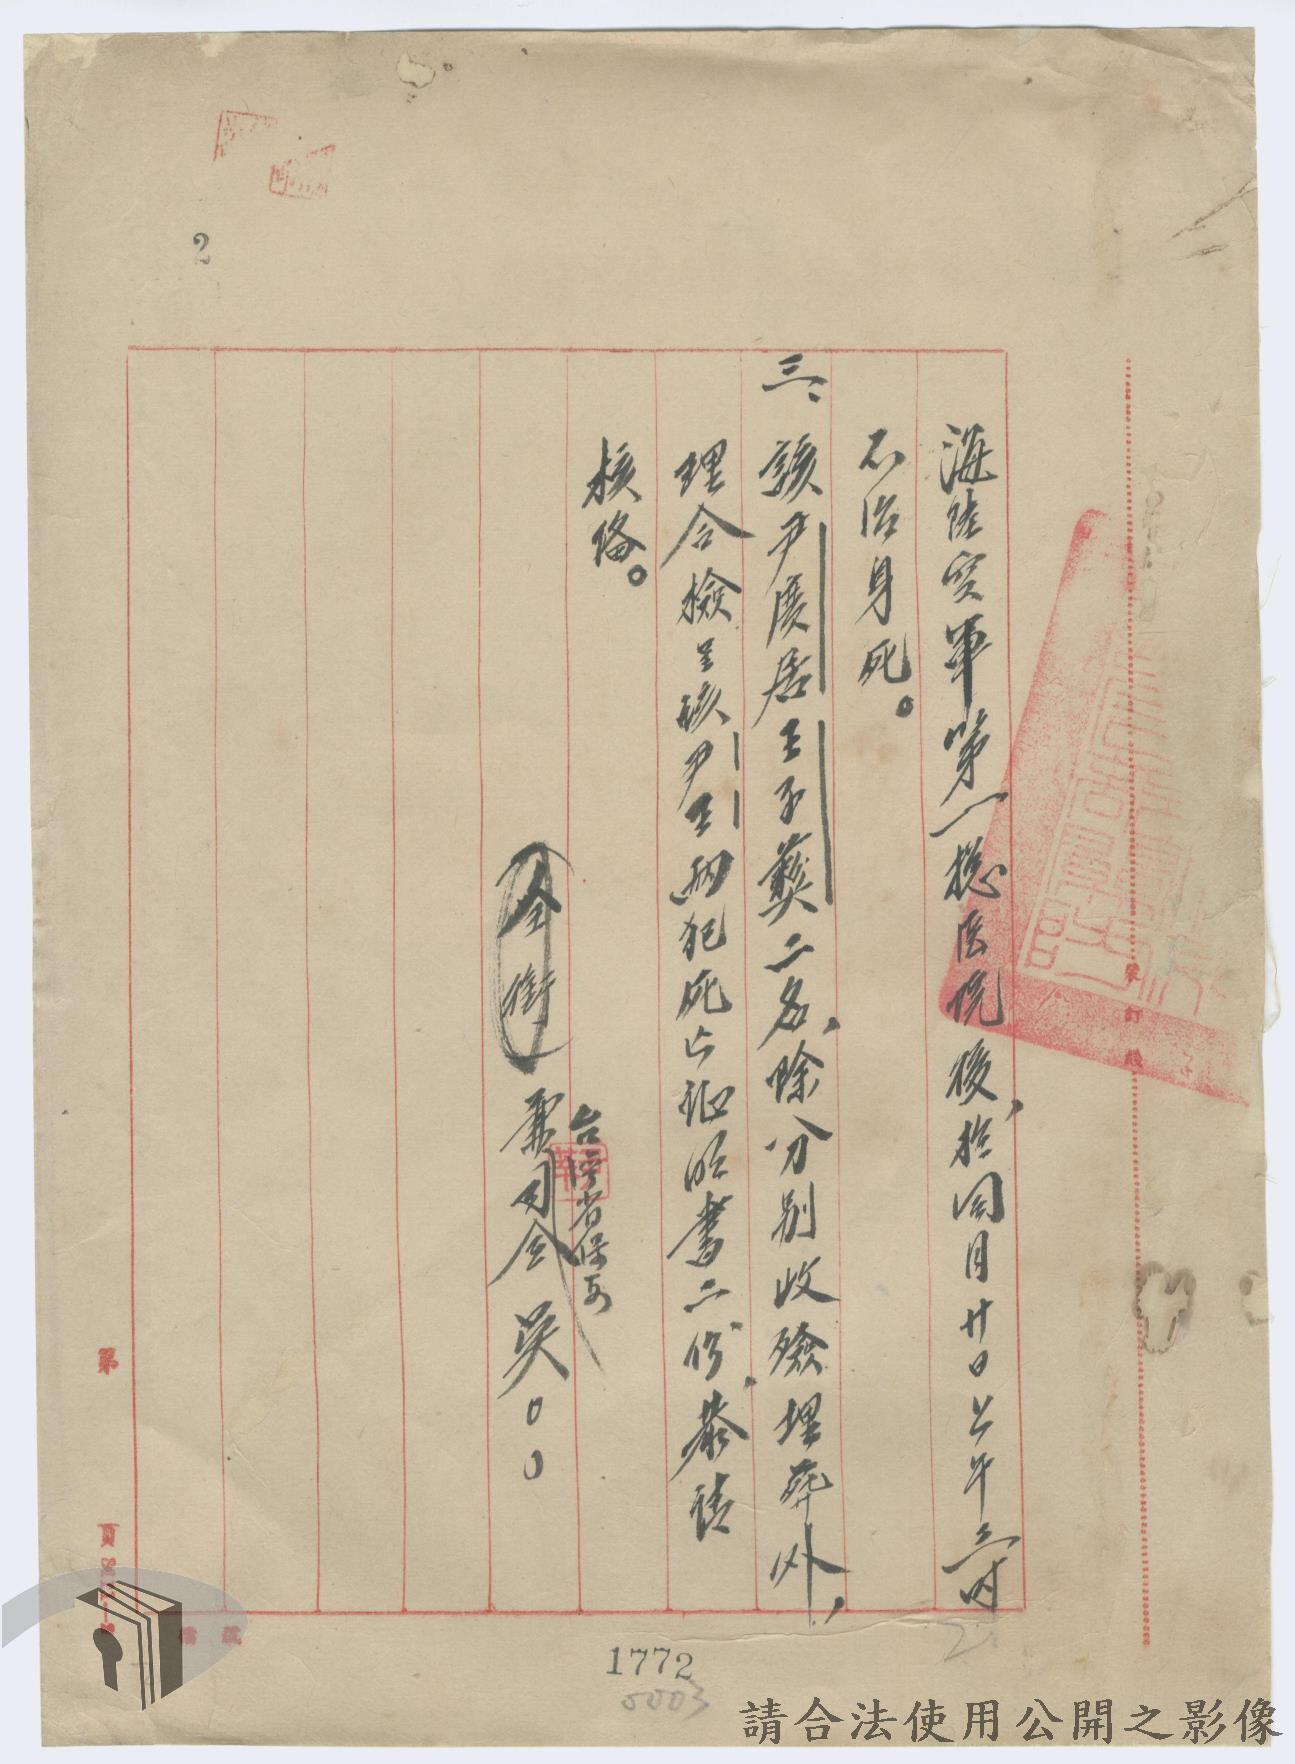 海陸空軍第一總医院後，於同月廿日上午三时
不治身死。
三、該尹廣居王子彝二名，除分别收殮埋葬外，
理合檢呈該尹王兩犯死亡证明書二份，恭請
核俻。
全銜兼司令吳〇〇
台灣省保安
2
裝訂線
第
頁
1772
0003
請合法使用公開之影像